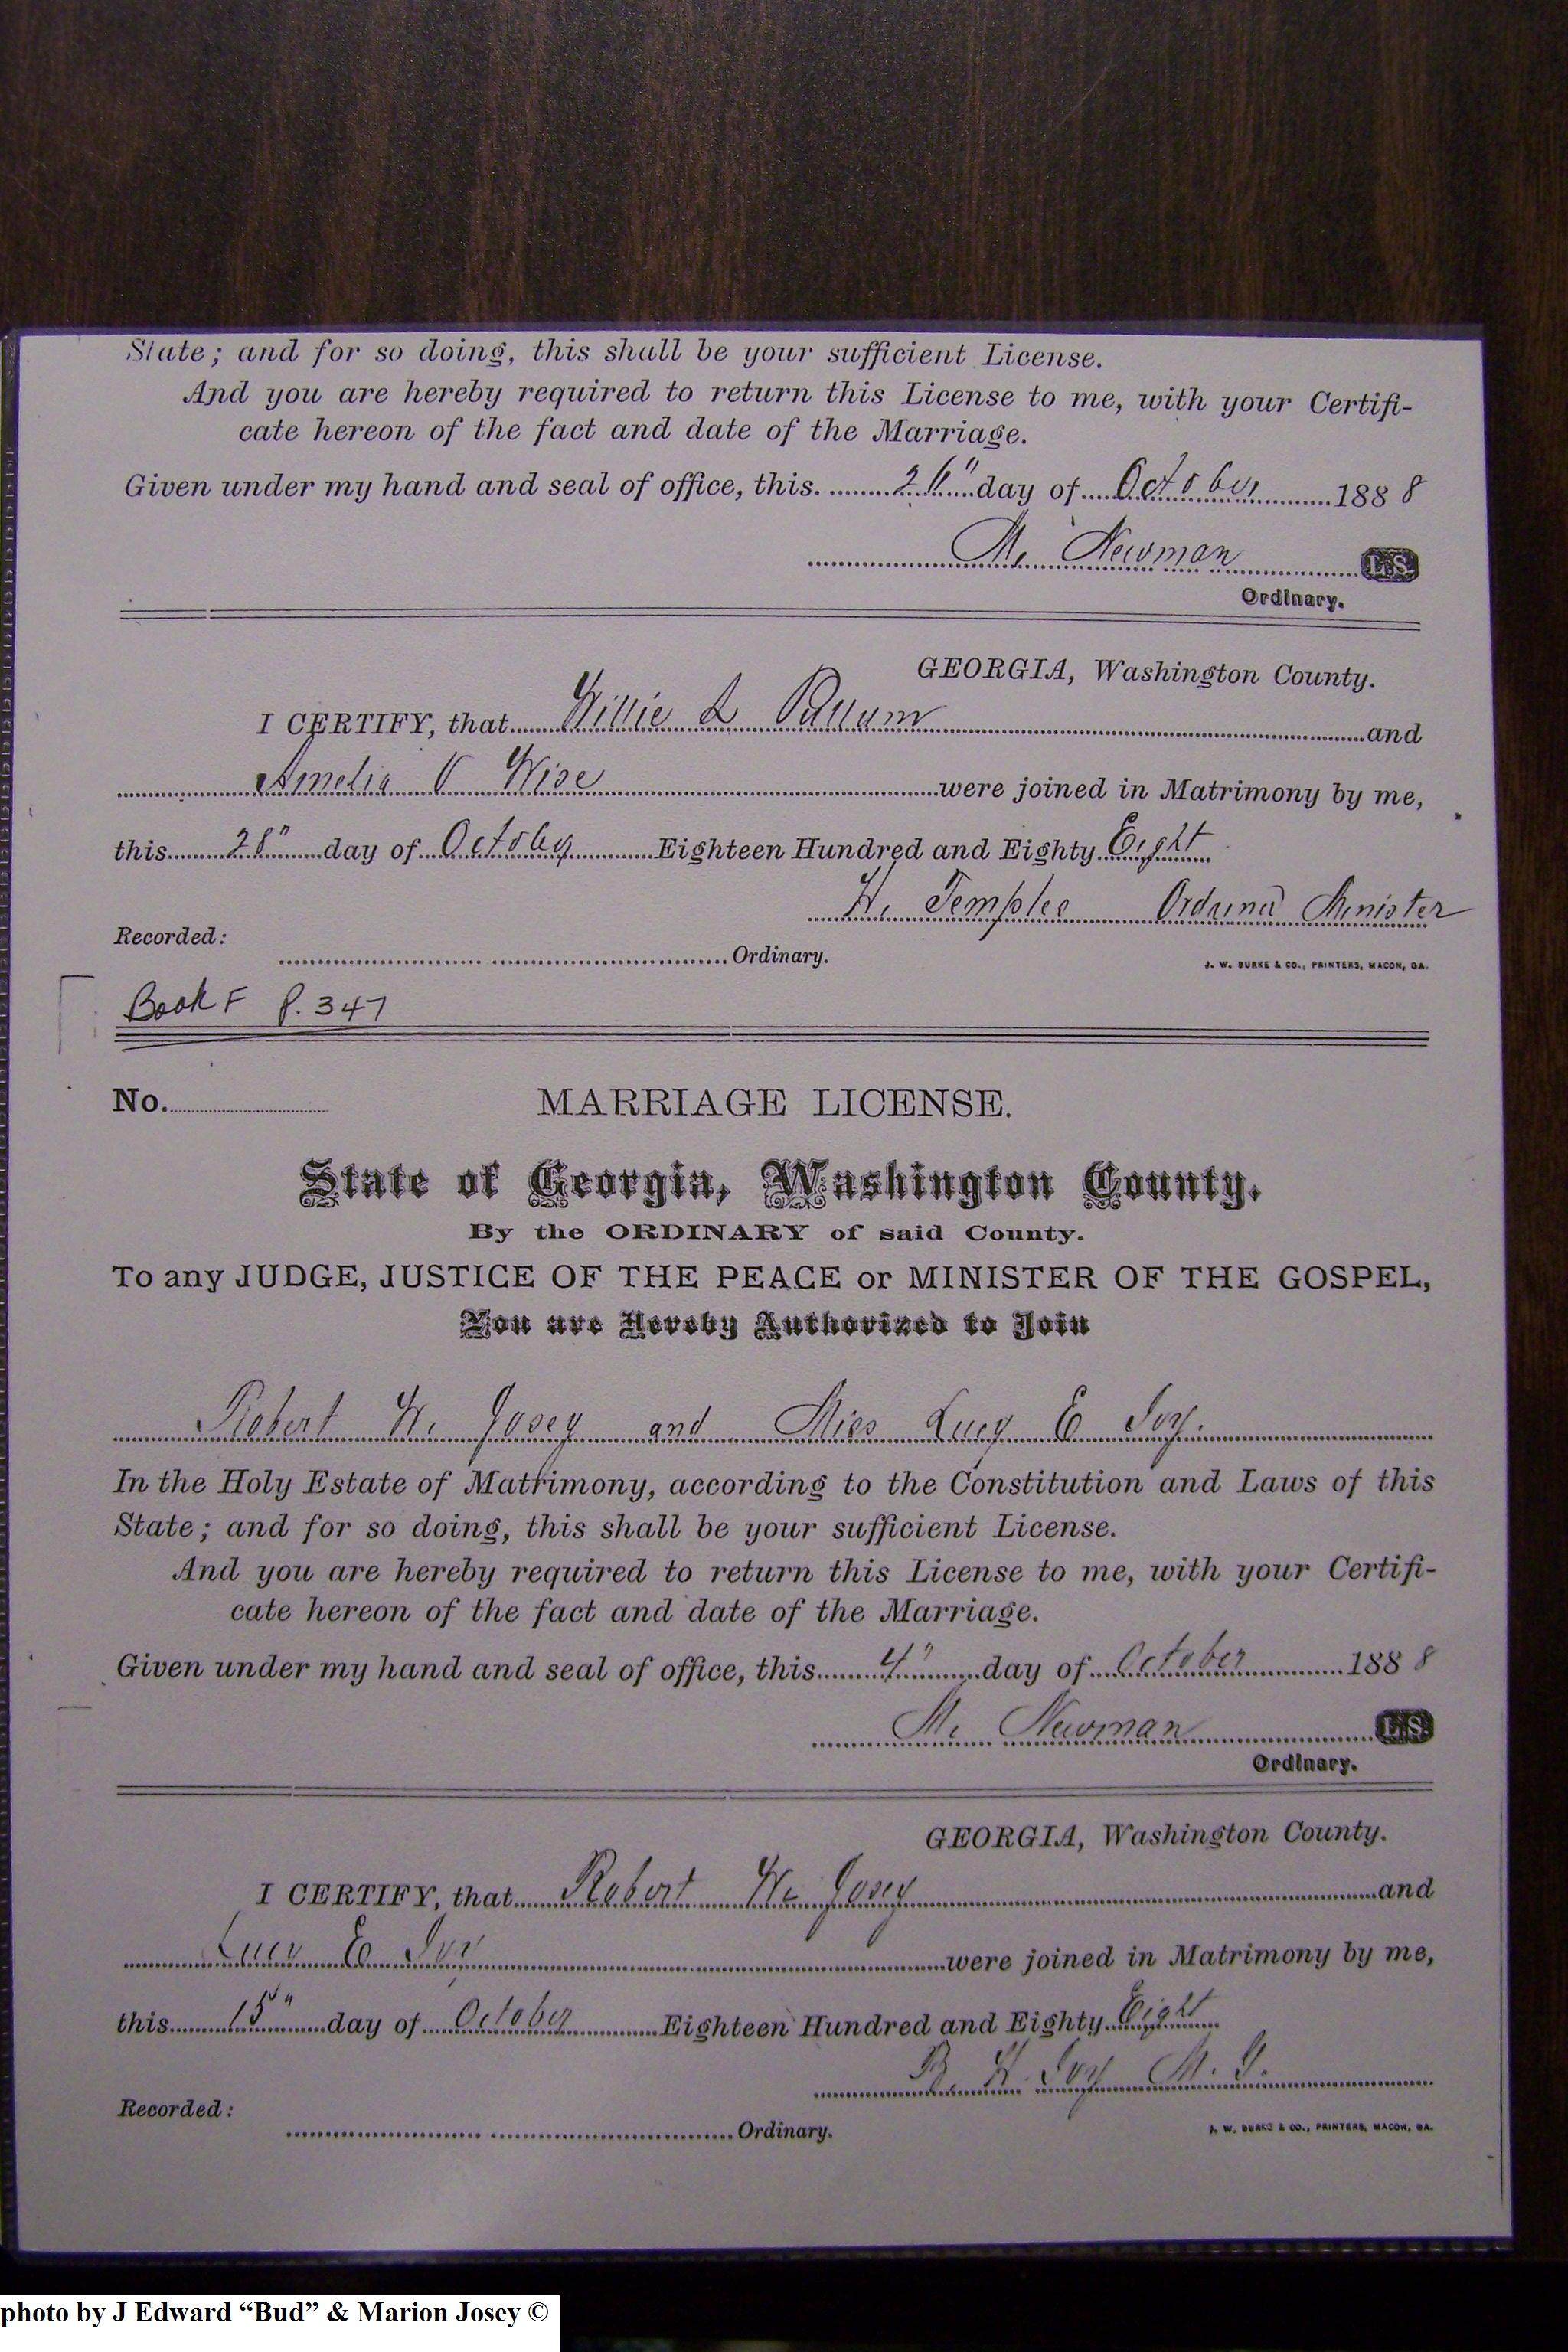 State; and for so doing, this shall be your sufficient License.
And you are hereby required to return this License to me, with your Certifi-
cate hereon of the fact and date of the Marriage.
Given under my hand and seal of office, this 26" day of October 1888
M. Newman L.S.
Ordinary.
GEORGIA, Washington County.
I CERTIFY, that Willie L and
Amelia V Wise were joined in Matrimony by me,
this 28" day of October Eighteen Hundred and Eighty Eight
H. Temples Ordained Minister
Recorded:
Ordinary.
J. W. BURKE & CO., PRINTERS, MACON, GA.
Book F P. 347
No. MARRIAGE LICENSE.
State of Georgia, Washington County.
By the ORDINARY of said County.
To any JUDGE, JUSTICE OF THE PEACE or MINISTER OF THE GOSPEL,
You are Hereby Authorized to Join
Robert W. Josey and Miss Lucy E Ivy.
In the Holy Estate of Matrimony, according to the Constitution and Laws of this
State; and for so doing, this shall be your sufficient License.
And you are hereby required to return this License to me, with your Certifi-
cate hereon of the fact and date of the Marriage.
Given under my hand and seal of office, this 4" day of October 1888
M. Newman L.S.
Ordinary.
GEORGIA, Washington County.
I CERTIFY, that Robert W. Josey and
Lucy E Ivy were joined in Matrimony by me,
this 15" day of October Eighteen Hundred and Eighty Eight
B. H. Ivy M. G.
Recorded:
Ordinary.
J. W. BURKE & CO., PRINTERS, MACON, GA.
photo by J Edward “Bud” & Marion Josey ©